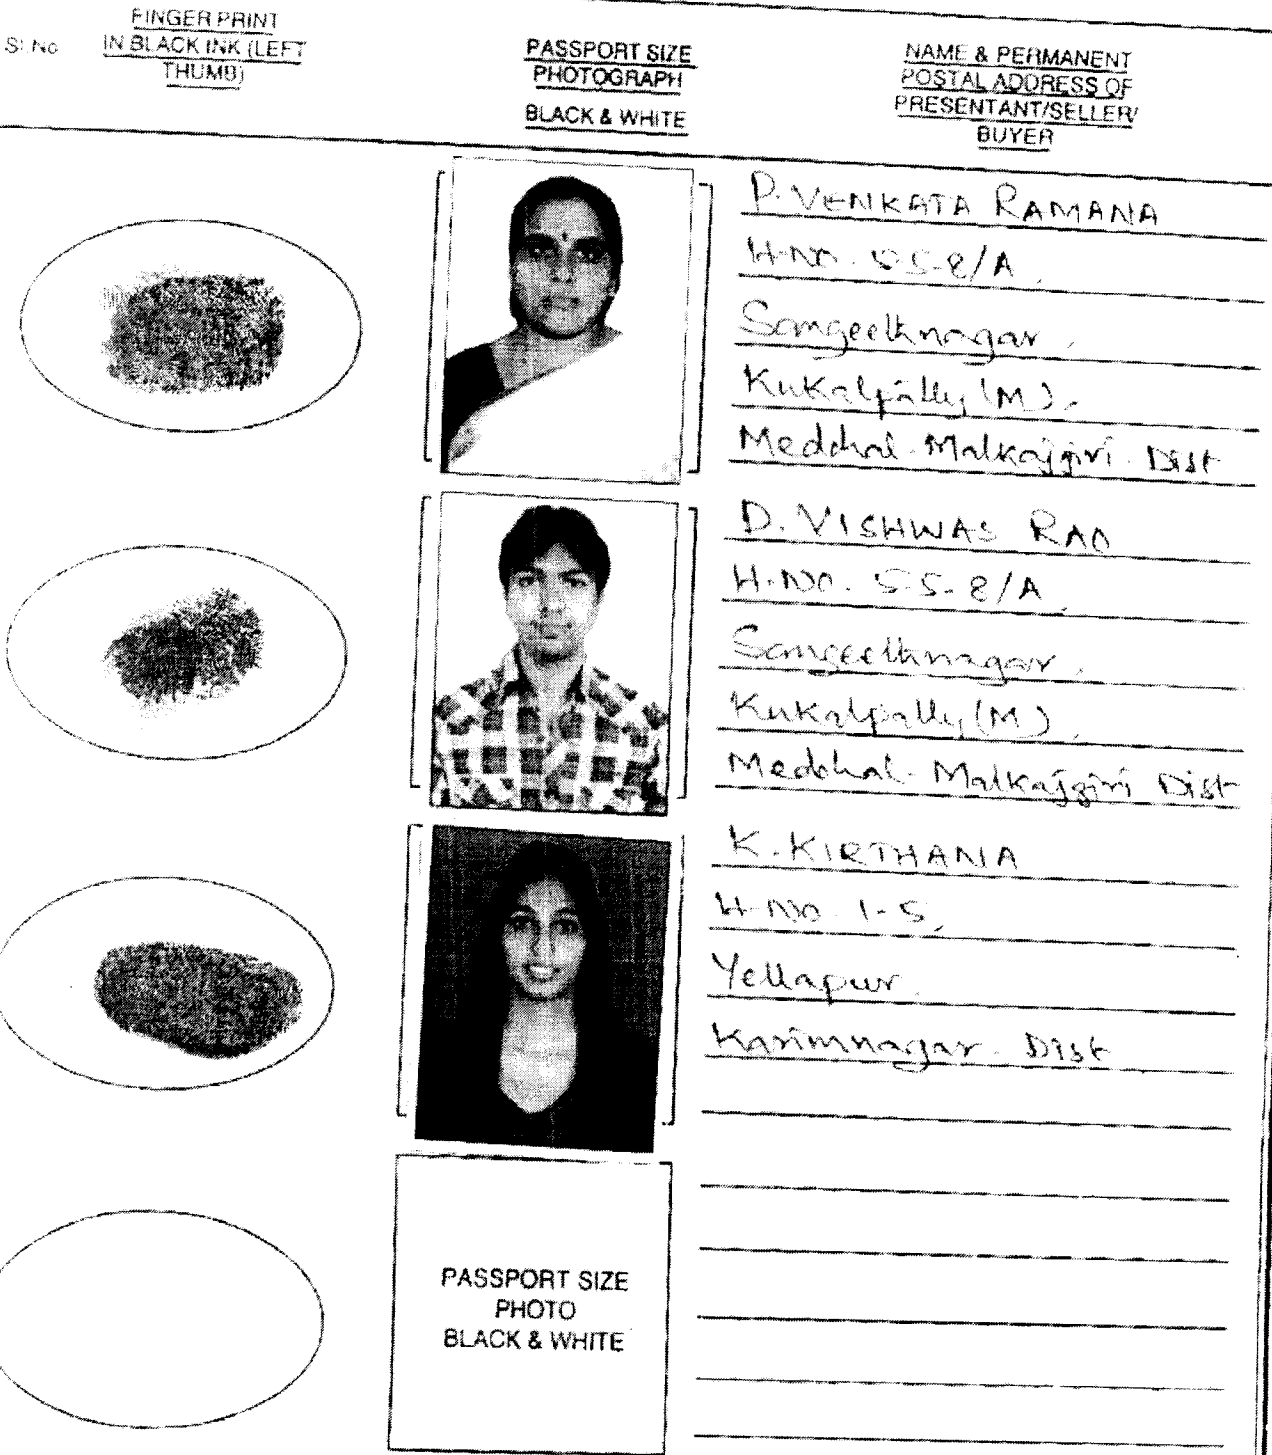 Sl. No
FINGER PRINT
IN BLACK INK (LEFT
THUMB)
PASSPORT SIZE
PHOTOGRAPH
BLACK & WHITE
NAME & PERMANENT
POSTAL ADDRESS OF
PRESENTANT/SELLER/
BUYER
P. VENKATA RAMANA
H.No. 55-8/A,
Sangeethnagar,
Kukatpally (M),
Medchal-Malkajgiri Dist
D. VISHWAS RAO
H.No. 5-5-8/A,
Sangeethnagar,
Kukatpally (M),
Medchal-Malkajgiri Dist
K. KIRTHANA
H.No. 1-5,
Yellapur
Karimnagar. Dist
PASSPORT SIZE
PHOTO
BLACK & WHITE